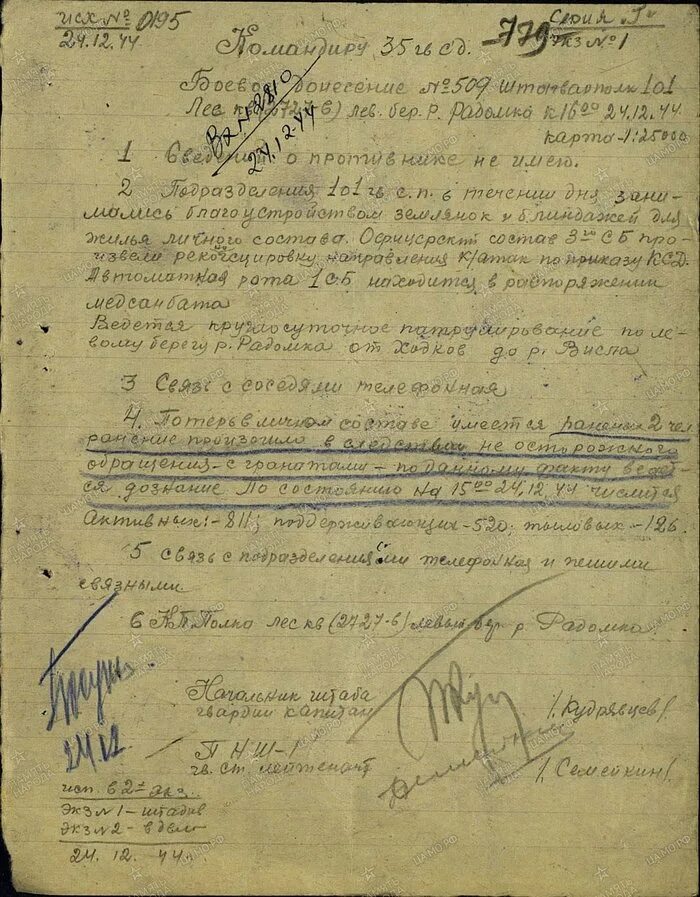 исх № 0195
24.12.44
Серия "Г"
экз №1
779
Командиру 35 гв СД.
Боевое донесение № 509 101
Лес кв (2727-в) лев. бер. р. Радомка к 16 00 24.12.44
карта-1:25000
Вх № 2810
24.12.44
1 Сведений о противнике не имею.
2 Подразделения 101 гв с.п. в течении дня зани-
мались благоустройством землянок и блиндажей для
жилья личного состава. Офицерский состав 3го СБ про-
извели рекогсцировку направления к/атак по приказу КСД.
Автоматная рота 1 СБ находится в распоряжении
медсанбата
Ведется круглосуточное патрулирование по ле-
вому берегу р. Радомка от Ходков до р. Висла
3 Связь с соседями телефонная
4. Потерь в личном составе имеется раненых 2 чел
ранение произошло в следствии не осторожного
обращения с гранатами - по данному факту ведет-
ся дознание. По состоянию на 15 00 24.12.44 числится
Активных:-811; поддерживающих-520; тыловых-126.
5 связь с подразделениями телефонная и пешими
связными.
6 КП Полка лес кв (2727-в) левый бер р. Радомка.
24/12
Начальник штаба
гвардии капитан /Кудрявцев/.
ПНШ-1
гв. ст. лейтенант /Семейкин/.
исп. в 2х экз.
экз №1 - штадив
экз №2 - в дело
24.12.44.
ПАМЯТЬ НАРОДА
ЦАМО.РФ